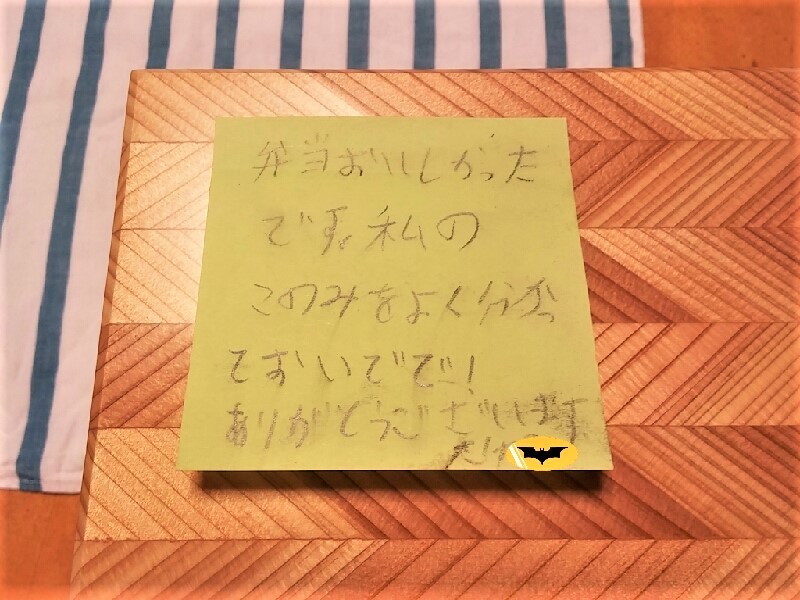 弁当おいしかった
です。私の
このみをよく分かっ
ておいでで!
ありがとうございます